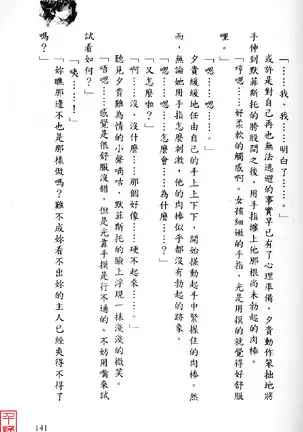 「……我、我……明白了……。」
或許是對自己再也無法逃避的事實早已有了心理準備，夕貴動作笨拙地將
手伸到默菲斯托的胯股間之後，用手指纏上他那根尚未勃起的肉棒。
「哼嗯……好柔軟的觸感啊。女孩細嫩的手指，光是用摸的就覺得好舒服
。」
「嗯嗯……嗯嗯……。」
夕貴緩緩地任由自己的手上上下下，開始搓動起手中緊握住的肉棒。然
而，無論她用手指怎麼刺激，他的肉棒似乎都沒有勃起的跡象。
「嗯嗯……嗯嗯……怎麼會……為什麼……？」
「又怎麼啦？」
「啊……沒、沒什麼……那個好像……硬不起來……。」
聽見夕貴難為情的小聲嘀咕，默菲斯托的臉上浮現一抹淺淺的微笑。
「唔嗯……感覺是很舒服沒錯，但是光靠手摸是行不通的。不妨用嘴來試
試看如何？」
「咦……！」
「妳瞧那邊不也是那樣做嗎？難不成妳看不出妳的主人已經爽得不得了
嗎？」
141